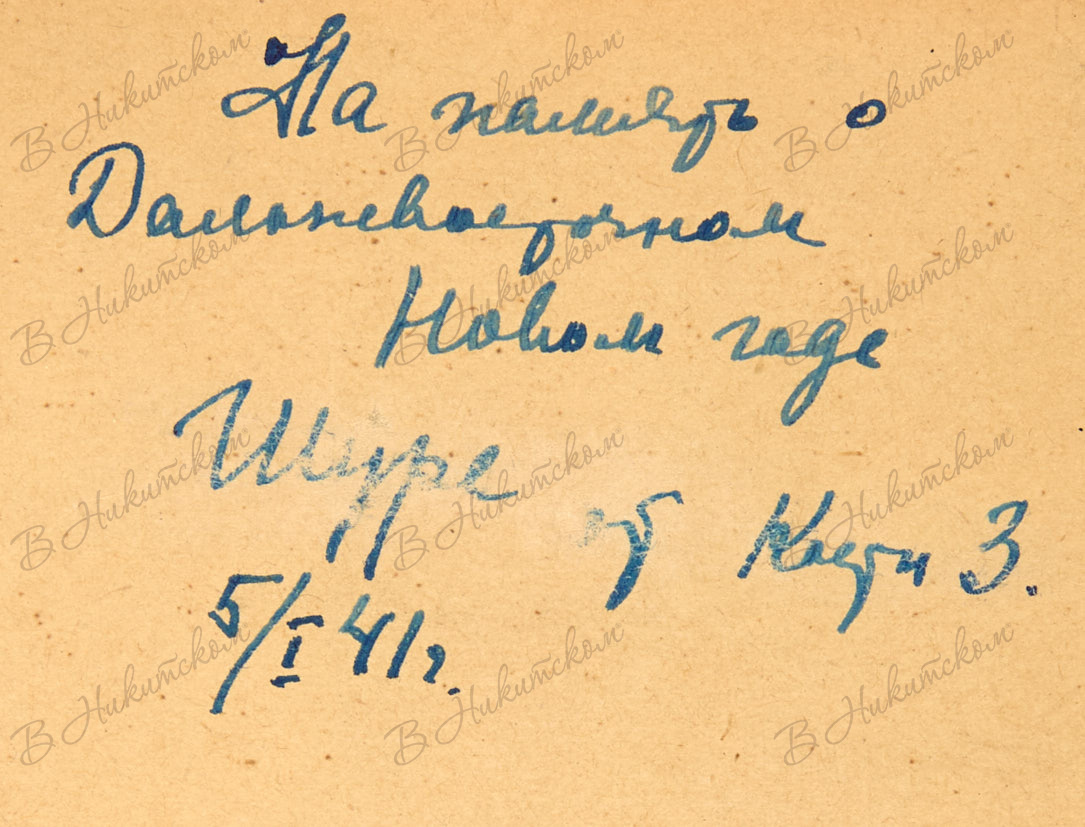 На память о
Дальневосточном
Новом годе
Шуре
от Кости З.
5/I 41г.
В Никитском